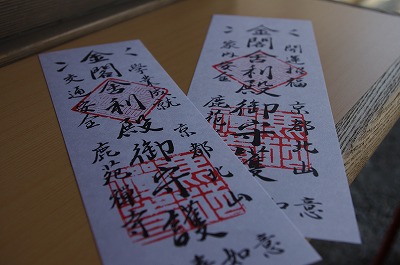 開運招福
京都北山
金閣舎利殿御守護
家内安全
鹿苑
如意
學業成就
京都北山
金閣舎利殿御守護
交通安全
鹿苑禅寺
如意